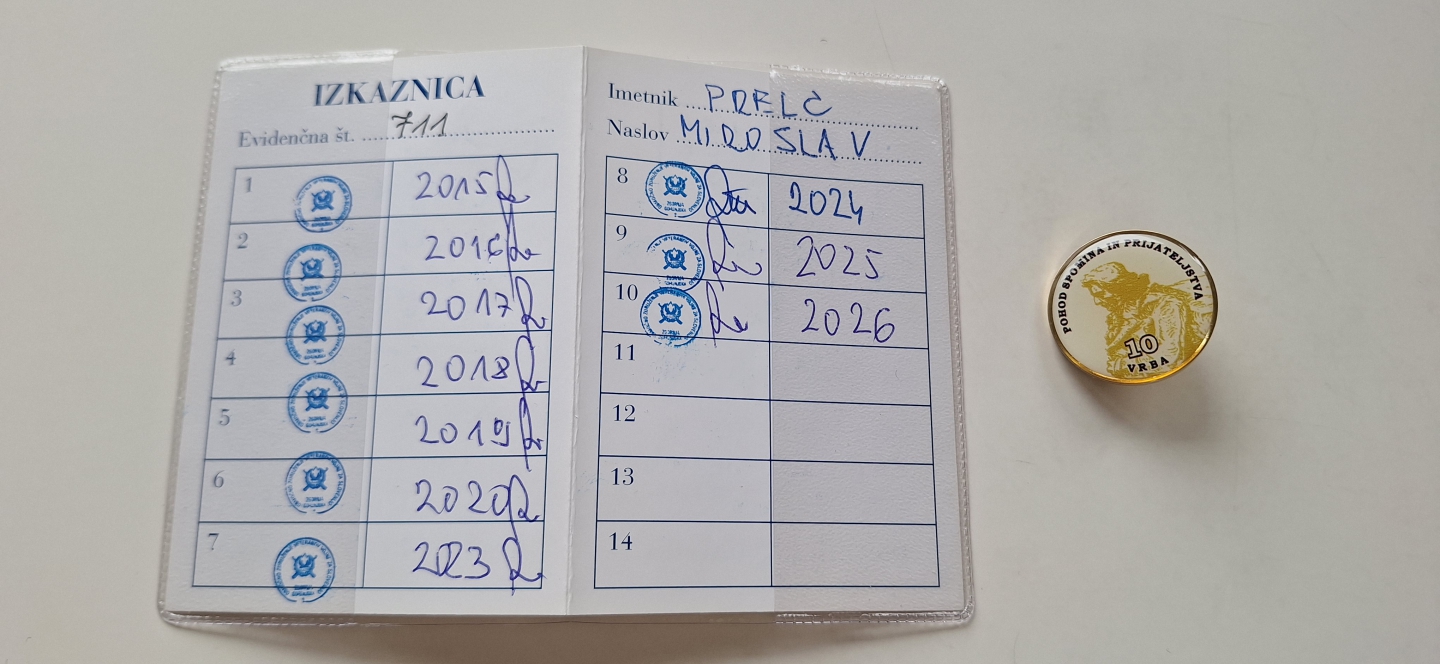 IZKAZNICA
Evidenčna št. 711
1 2015
2 2016
3 2017
4 2018
5 2019
6 2020
7 2023
Imetnik PRELC
Naslov MIROSLAV
8 2024
9 2025
10 2026
11
12
13
14
POHOD SPOMINA IN PRIJATELJSTVA
10
VRBA